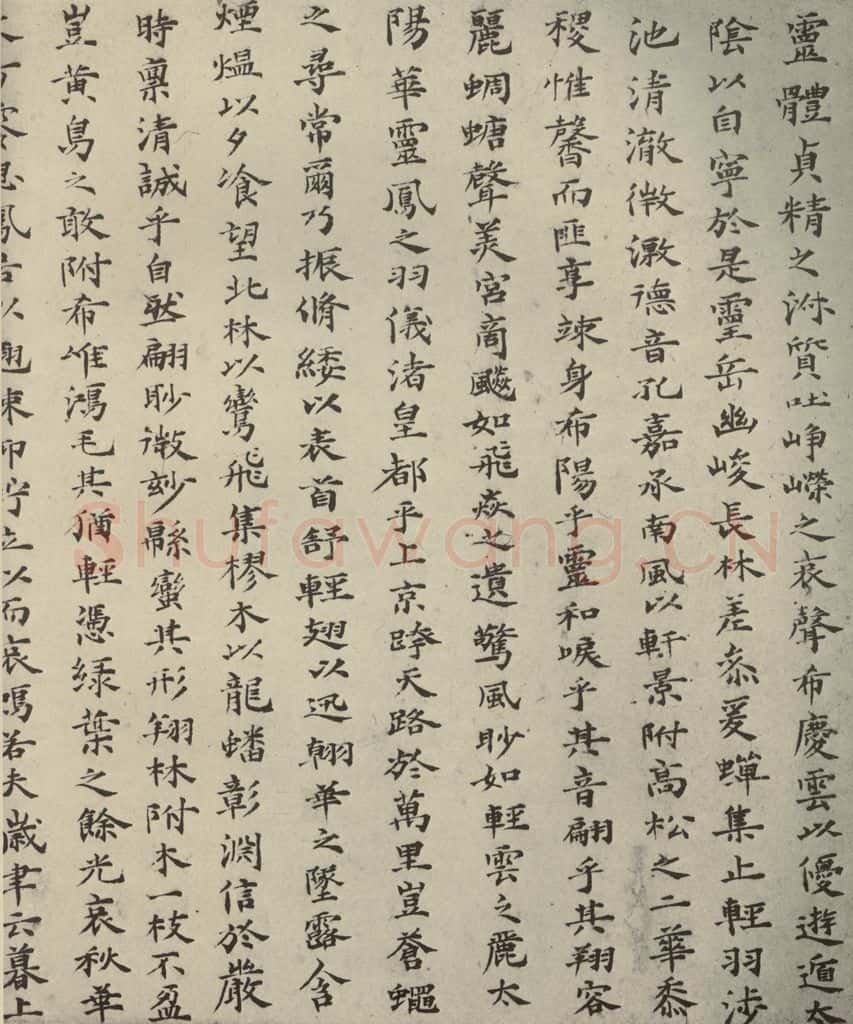 靈體貞精之淑質吐崢嶸之哀聲布慶雲以優遊遁太
陰以自寧於是靈岳幽峻長林差參爰蟬集止輕羽涉
池清澈微激德音孔嘉承南風以軒景附高松之二華黍
稷惟馨而匪享竦身希陽乎靈和唳乎其音翩乎其翔容
麗蜩螗聲美宮商飈如飛焱之遺驚風眇如輕雲之麗太
陽華靈鳳之羽儀渚皇都乎上京跨天路於萬里豈蒼蠅
之尋常爾乃振脩緌以表首舒輕翅以迅翰華之墜露含
煙熅以夕飡望北林以鸞飛集樛木以龍蟠彰淵信於嚴
時禀清誠乎自然翩眇微妙緜蠻其形翔林附木一枝不盈
豈黃鳥之敢附希唯鴻毛其猶輕憑綠葉之餘光哀秋華
零思鳳居以翹竦仰佇立以而哀鳴若夫歲聿云暮上
Shufawang.CN